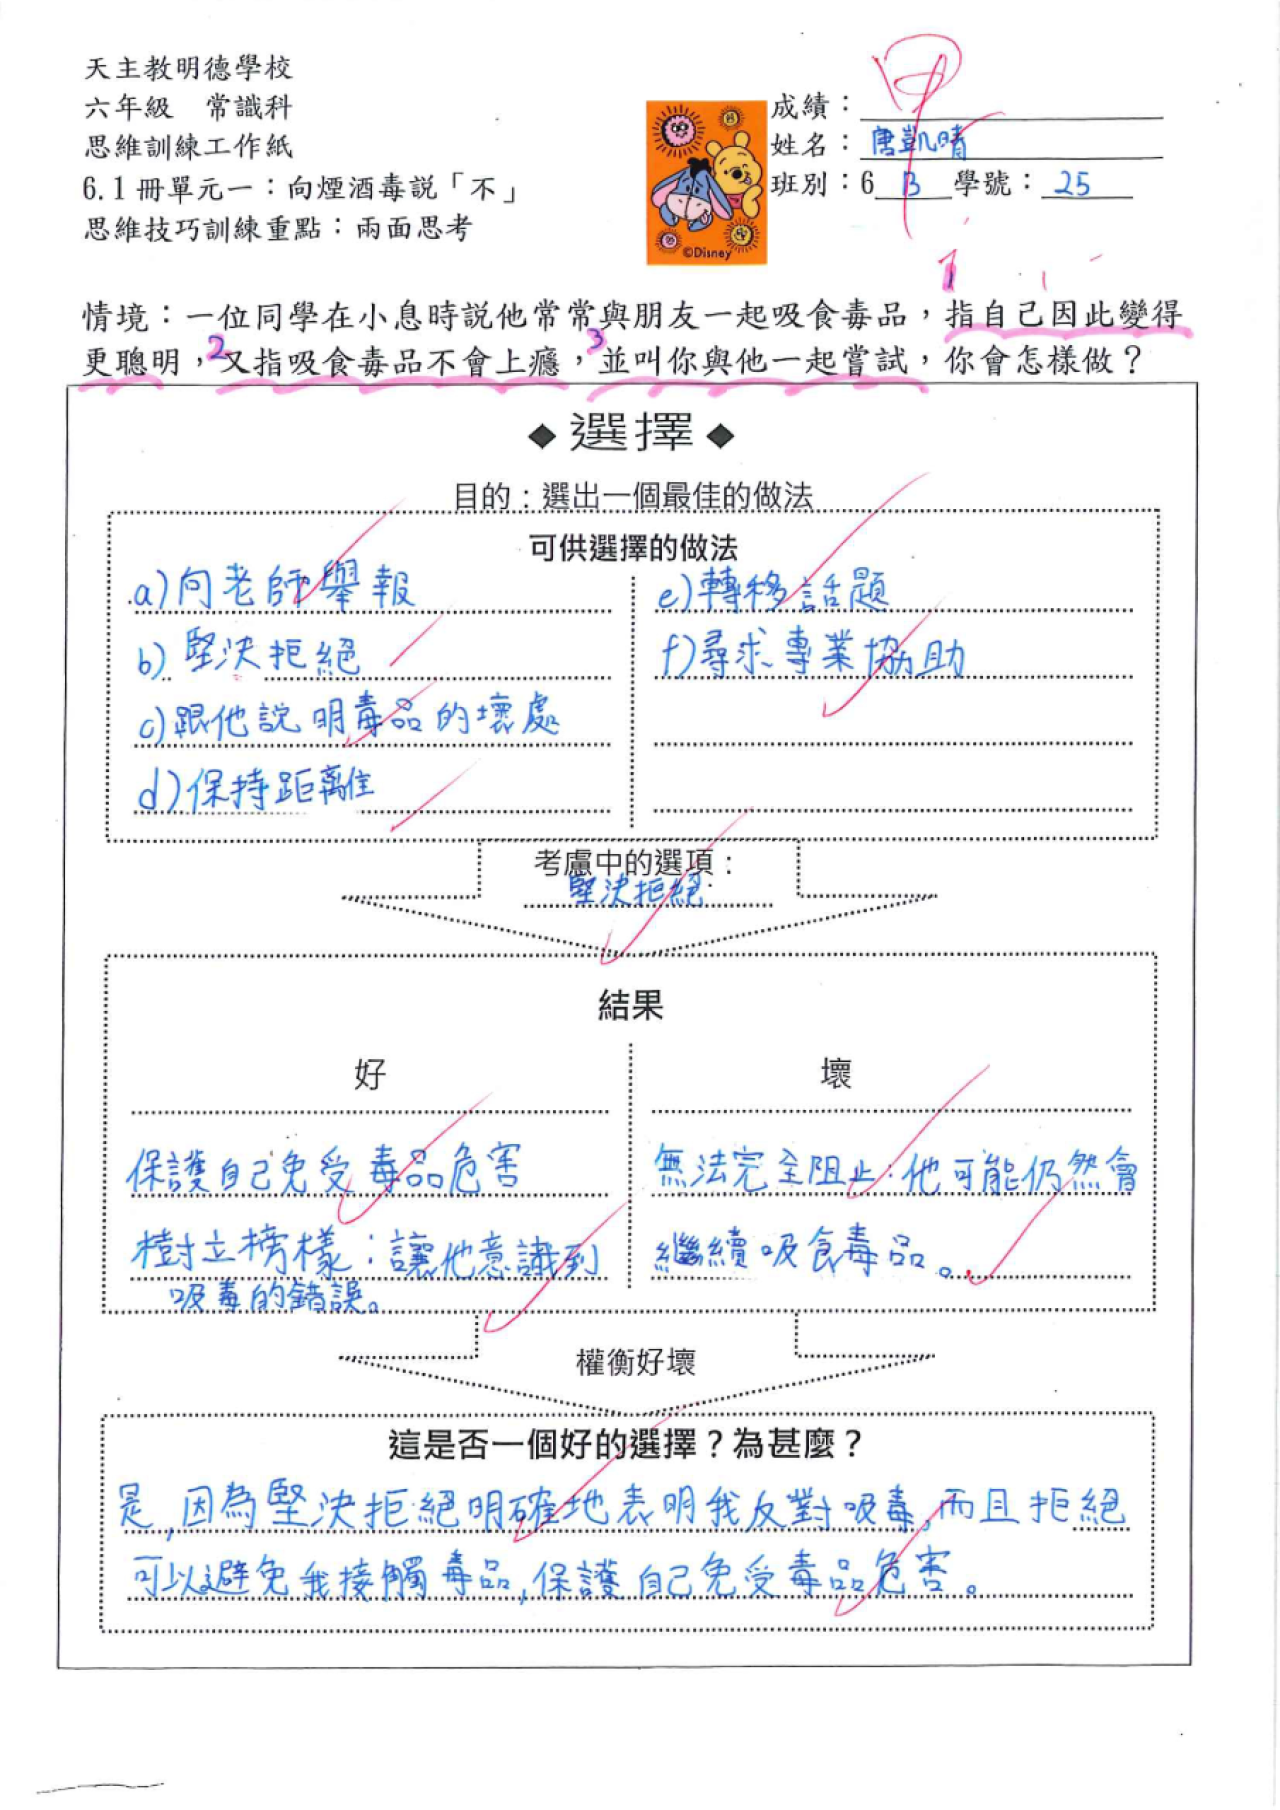 天主教明德學校
六年級 常識科
思維訓練工作紙
6.1冊單元一：向煙酒毒説「不」
思維技巧訓練重點：兩面思考
©Disney
成績：甲
姓名：唐凱晴
班別：6 B 學號：25
1
情境：一位同學在小息時説他常常與朋友一起吸食毒品，指自己因此變得
2 3
更聰明，又指吸食毒品不會上癮，並叫你與他一起嘗試，你會怎樣做？
◆選擇◆
目的：選出一個最佳的做法
可供選擇的做法
a)向老師舉報
b)堅決拒絕
c)跟他説明毒品的壞處
d)保持距離
e)轉移話題
f)尋求專業協助
考慮中的選項：
堅決拒絕
結果
好
保護自己免受毒品危害
樹立榜樣：讓他意識到
吸毒的錯誤。
壞
無法完全阻止：他可能仍然會
繼續吸食毒品。
權衡好壞
這是否一個好的選擇？為甚麼？
是,因為堅決拒絕明確地表明我反對吸毒,而且拒絕
可以避免我接觸毒品,保護自己免受毒品危害。